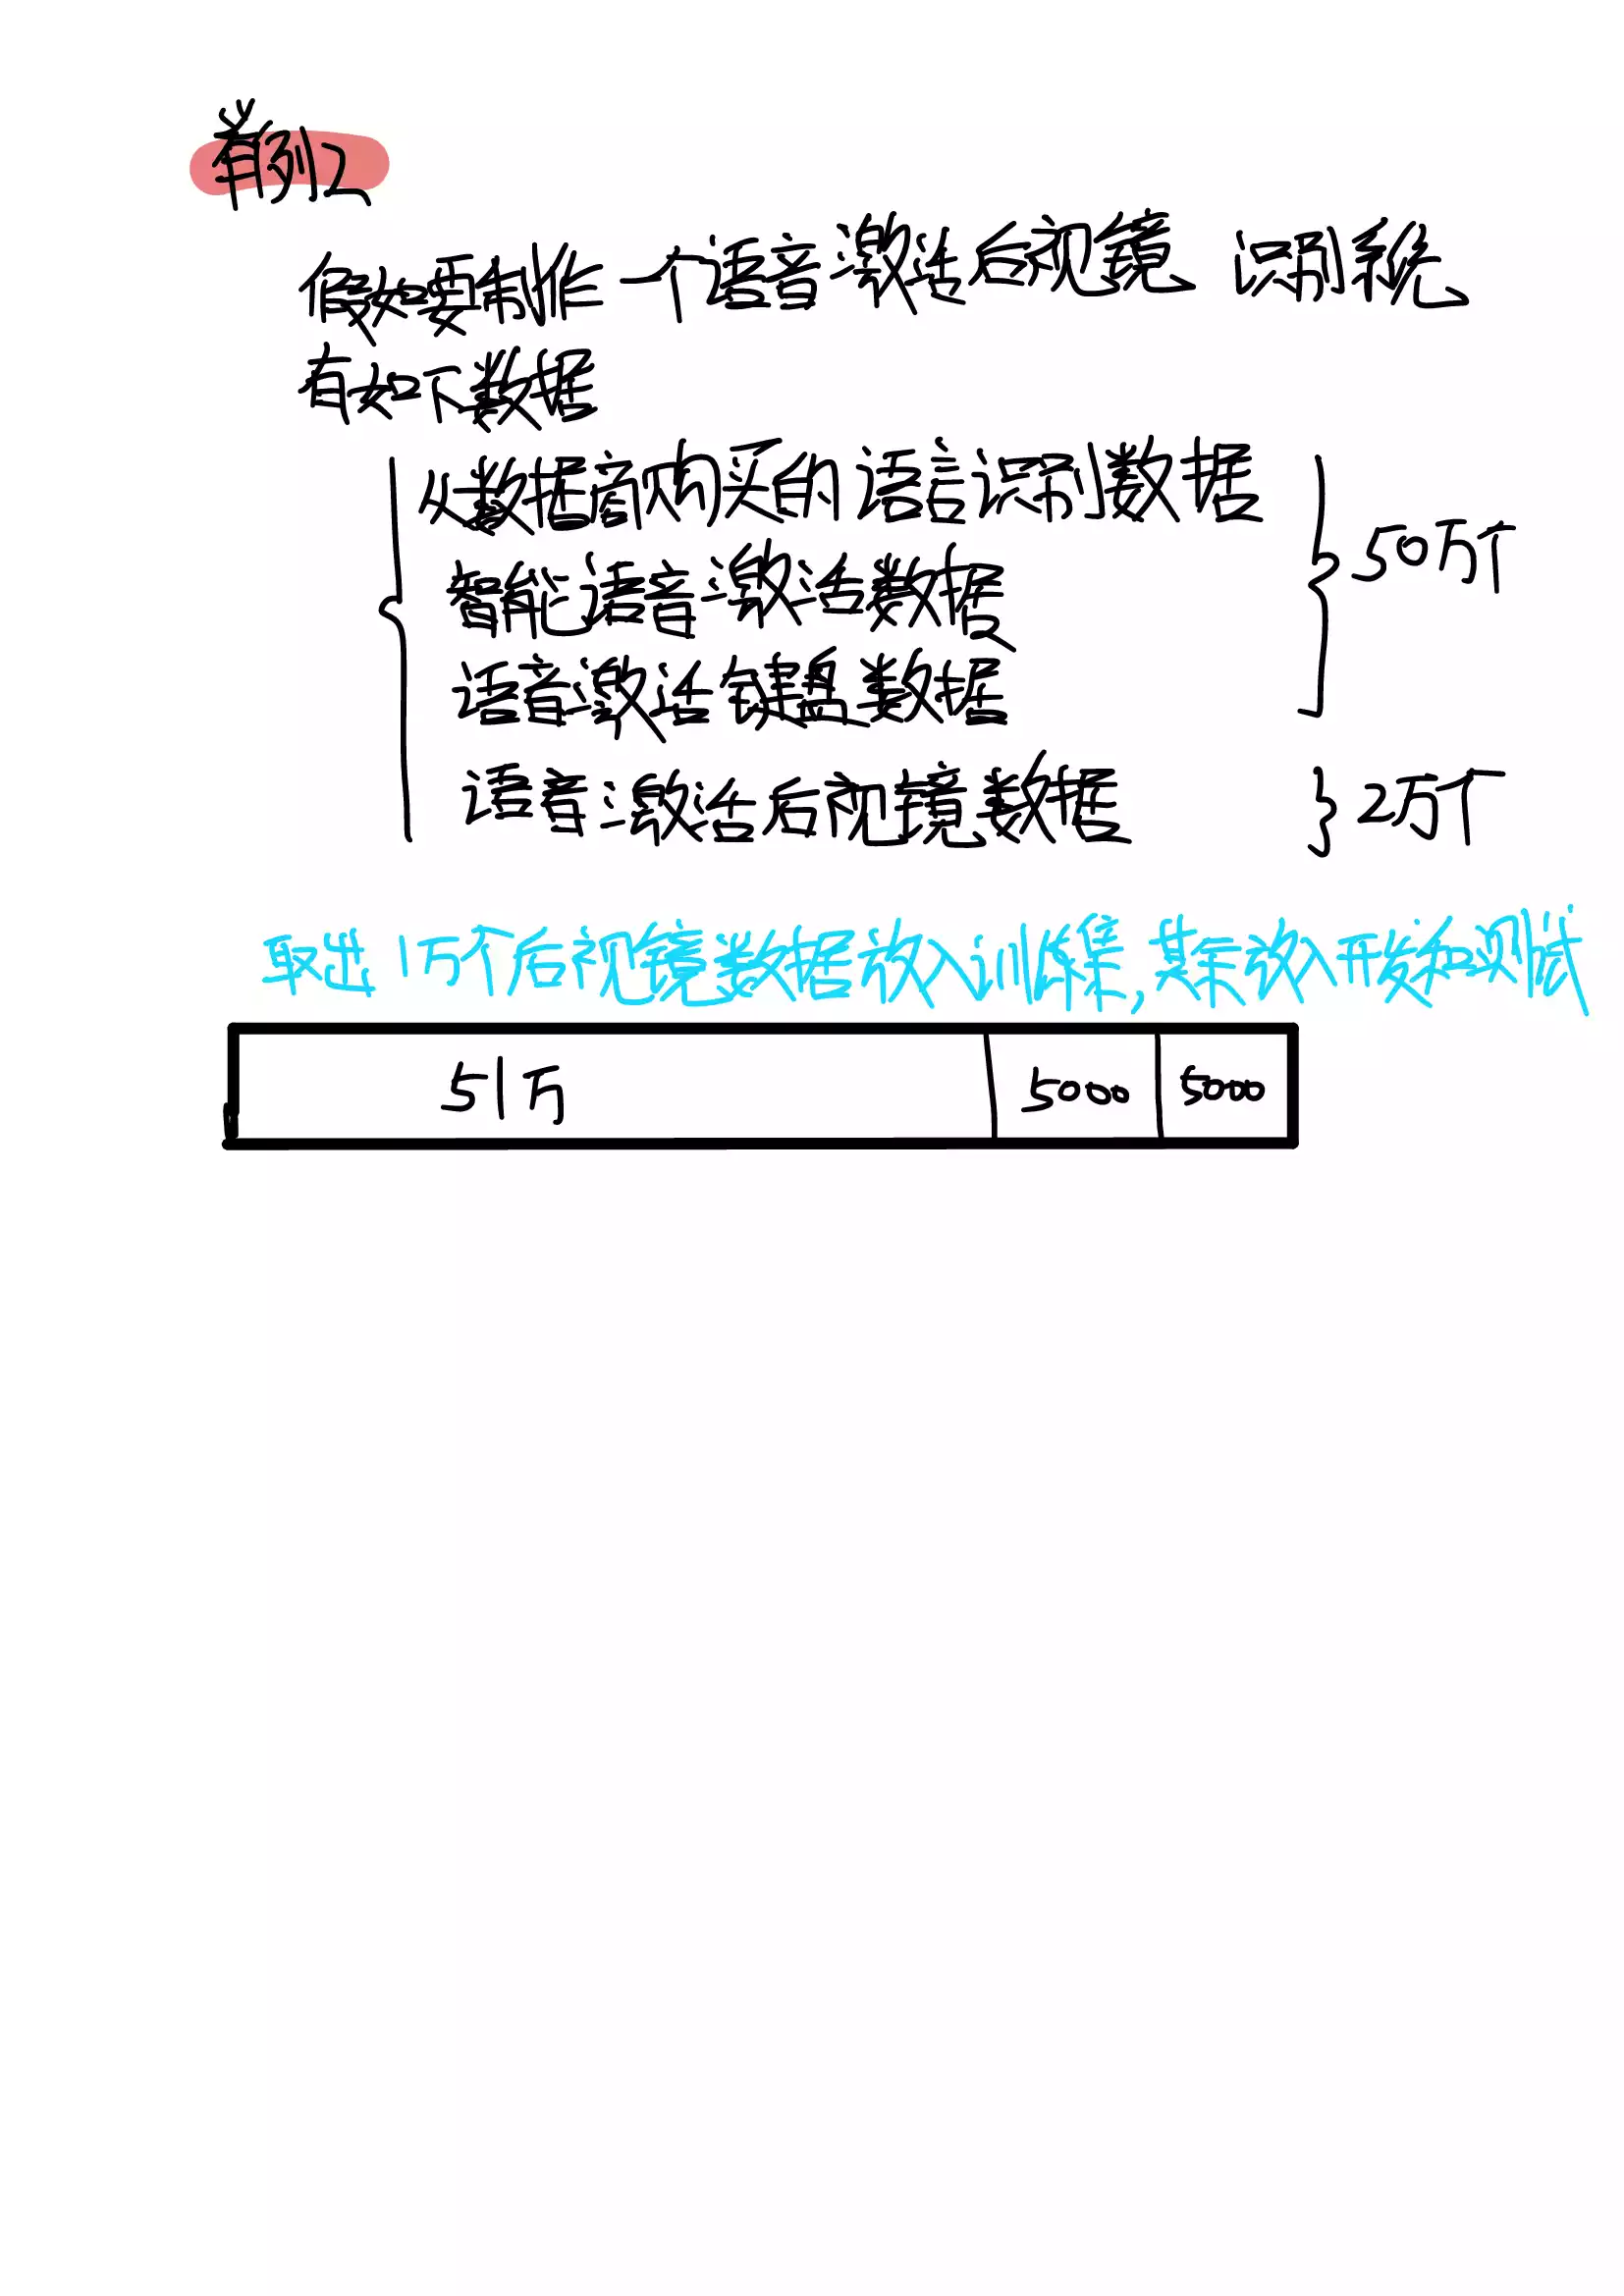 有列2
假如要制作一个语音激活后视镜 识别系统
有如下数据
从数据商购买的语言识别数据
智能语音激活数据
语音激活键盘数据
50万个
语音激活后视镜数据
2万个
取出1万个后视镜数据放入训练集,其余放入开发和测试
51万 5000 5000